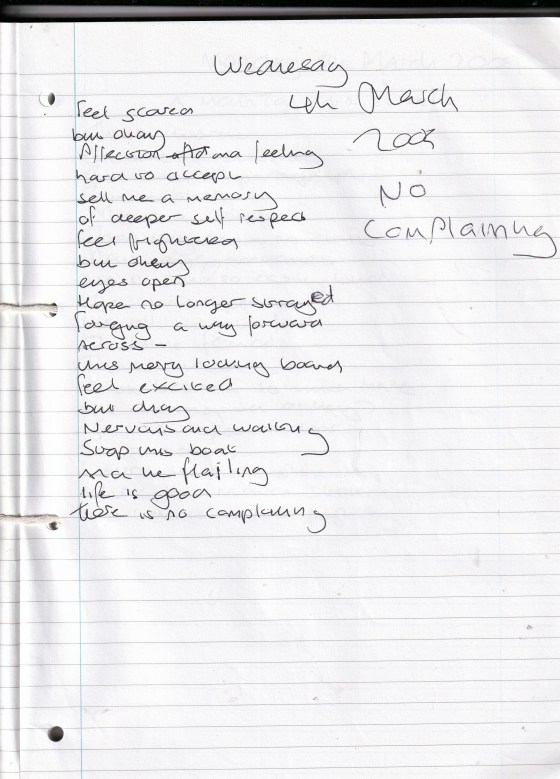 Wednesday
4th March
2009
No
Complaining
feel scared
but okay
Affection and a feeling
hard to accept
sell me a memory
of deeper self respect
feel frightened
but okay
eyes open
Hope no longer
forging a way forward
Across -
this merry looking board
feel excited
but okay
Nervous and waiting
this boat
flailing
life is good
there is no complaining